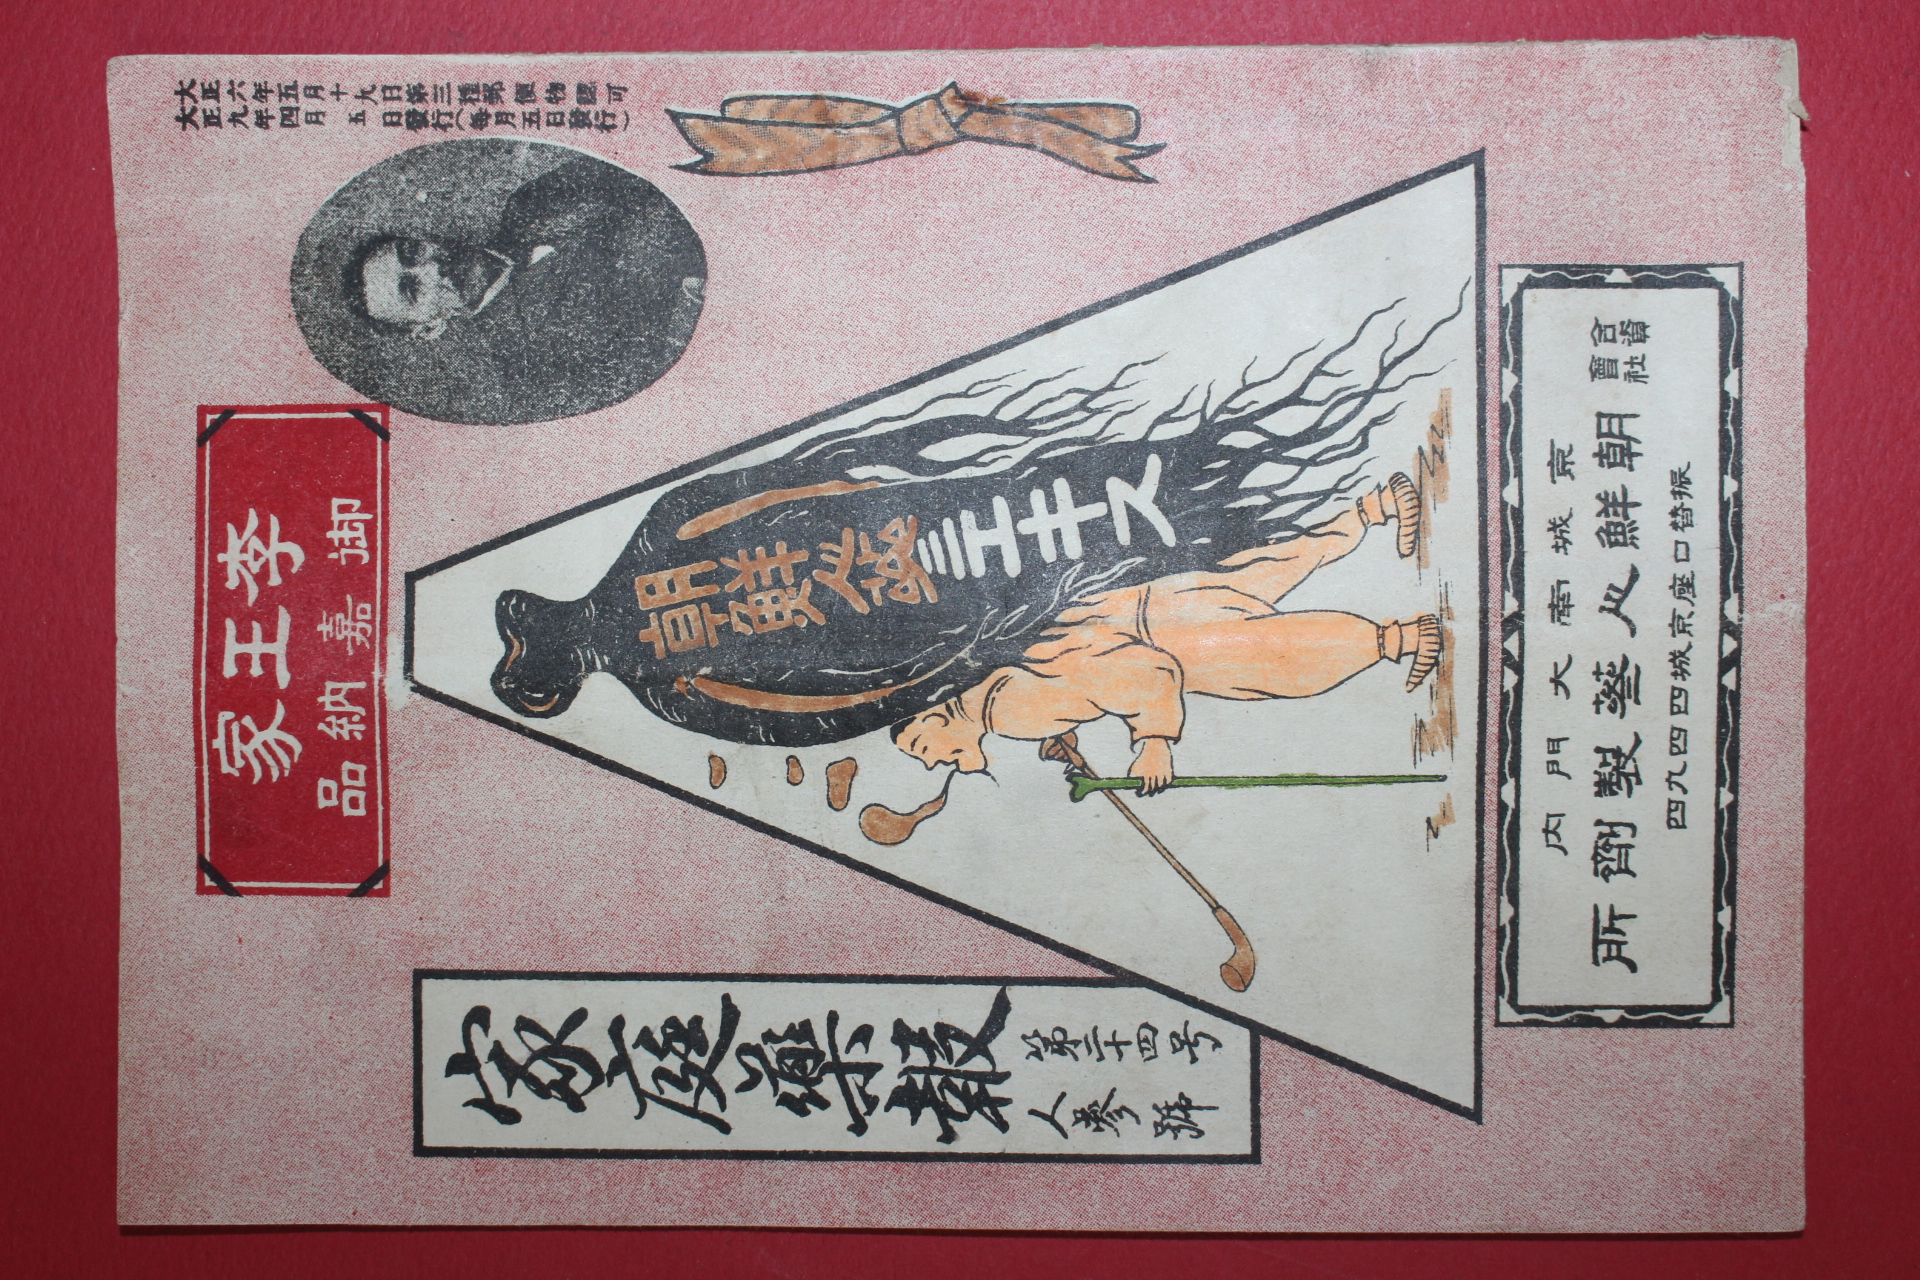 大正六年五月十九日第三種郵便物認可
大正九年四月五日發行(每月五日發行)
李王家
御嘉納品
家庭藥報
第二十四号
人參號
朝鮮人蔘
エキス
京城南大門内
合資會社
朝鮮人蔘製劑所
振替口座京城四四九四